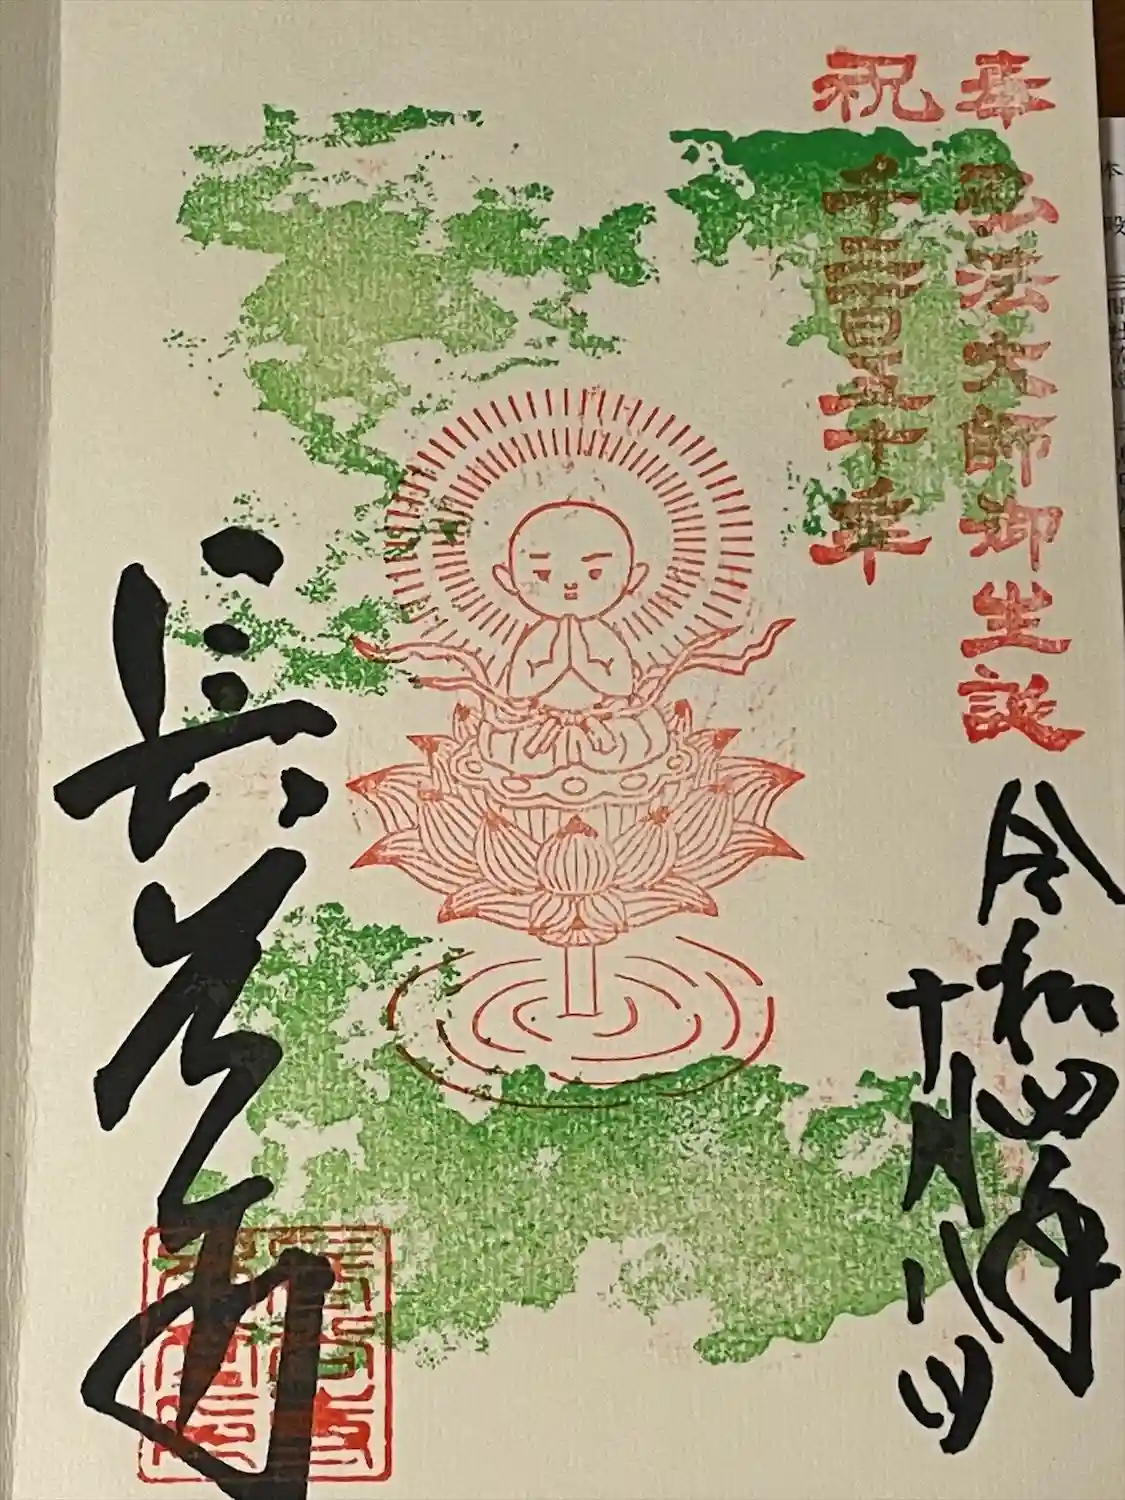 奉
弘法大師御生誕
祝
千二百五十年
令和四年
十月八日
長谷寺
本
殿